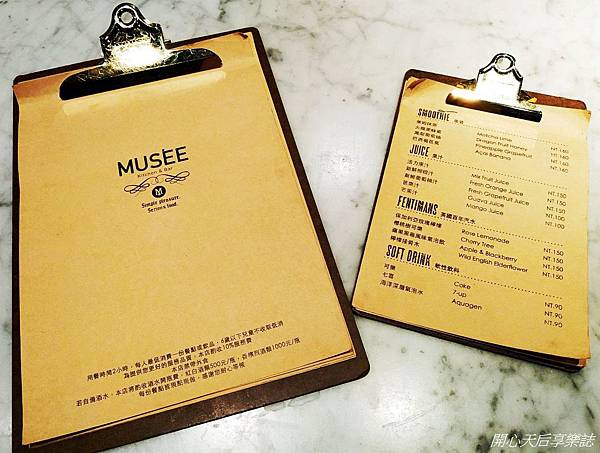 MUSÉE
Kitchen & Bar
M
Simple pleasure.
Serious food.
用餐時間2小時，每人最低消費一份餐點或飲品，6歲以下兒童不收取低消
為提供您更好的服務品質，本店酌收10%服務費
本店禁帶外食
若自備酒水，本店將酌收酒水開瓶費，紅白酒類500元/瓶，香檳烈酒類1000元/瓶
每份餐點皆現點現做，感謝您耐心等候
SMOOTHIE 冰沙
Matcha Lime NT.160
火龍果蜂蜜 Dragon Fruit Honey NT.160
鳳梨葡萄柚 Pineapple Grapefruit NT.160
巴西莓芭蕉 Açai Banana NT.160
JUICE 果汁
活力果汁 Mix Fruit Juice NT.150
新鮮柳橙汁 Fresh Orange Juice NT.150
新鮮葡萄柚汁 Fresh Grapefruit Juice NT.150
芭樂汁 Guava Juice NT.100
芒果汁 Mango Juice NT.100
FENTIMANS 英國百年汽水
保加利亞玫瑰檸檬 Rose Lemonade NT.150
櫻桃樹可樂 Cherry Tree NT.150
蘋果黑莓風味氣泡飲 Apple & Blackberry NT.150
檸檬接骨木 Wild English Elderflower NT.150
SOFT DRINK 軟性飲料
可樂 Coke NT.90
七喜 7-up NT.90
海洋深層氣泡水 Aquagen NT.90
開心天后享樂誌